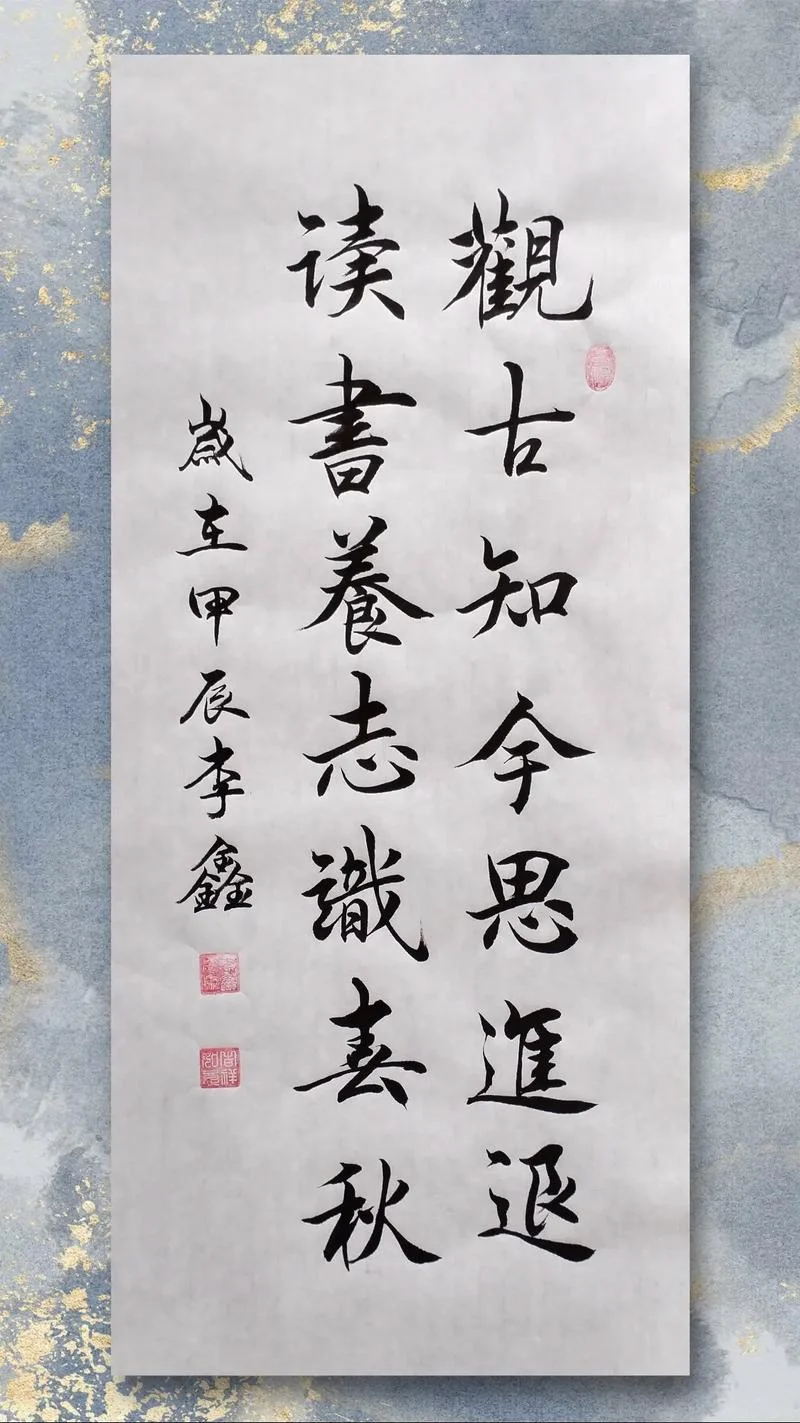 觀古知今思進退
读書養志識春秋
歲在甲辰李鑫